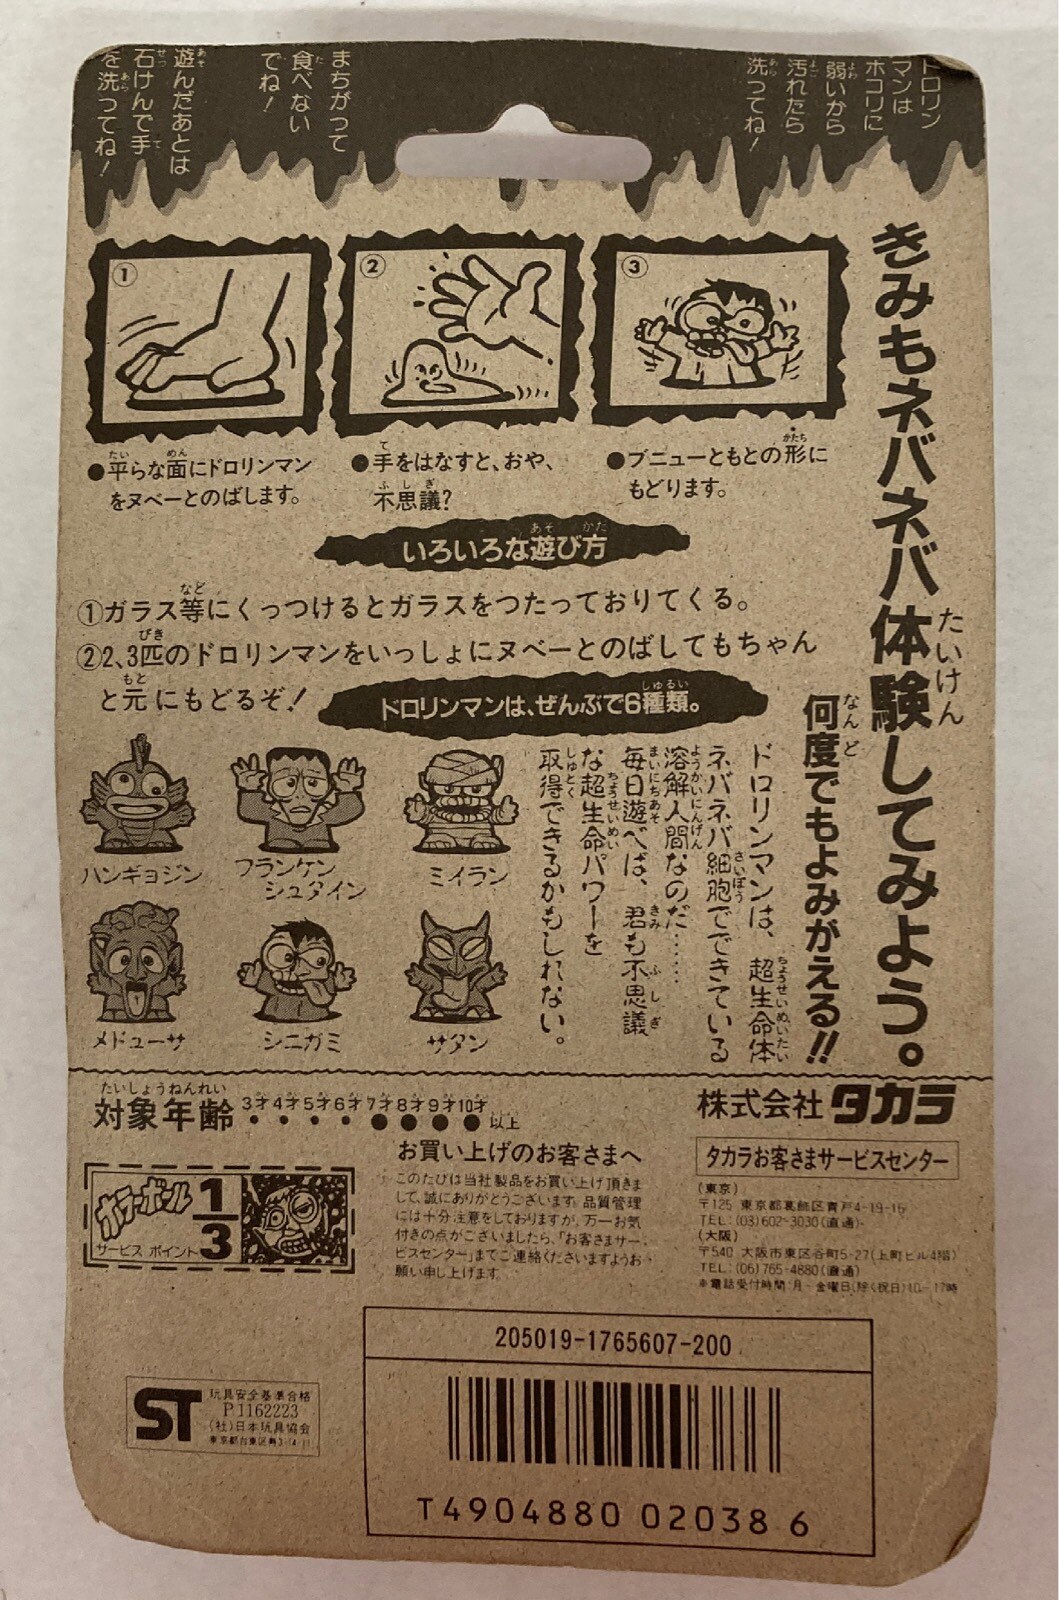 ドロリン
マンは
ホコリに
弱いから
汚れたら
洗ってね!
まちがって
食べない
でね!
遊んだあとは
石けんで手
を洗ってね!
きみもネバネバ体験してみよう。
何度でもよみがえる!!
①
②
③
●平らな面にドロリンマン
をヌベーとのばします。
●手をはなすと、おや、
不思議?
●ブニューともとの形に
もどります。
いろいろな遊び方
①ガラス等にくっつけるとガラスをつたっておりてくる。
②2、3匹のドロリンマンをいっしょにヌベーとのばしてもちゃん
と元にもどるぞ!
ドロリンマンは、ぜんぶで6種類。
ドロリンマンは、超生命体
ネバネバ細胞でできている
溶解人間なのだ……
毎日遊べば、君も不思議
な超生命パワーを
取得できるかもしれない。
ハンギョジン
フランケン
シュタイン
ミイラン
メドューサ
シニガミ
サタン
対象年齢 3才4才5才6才7才8才9才10才以上
株式会社タカラ
タカラお客さまサービスセンター
(東京)
〒125 東京都葛飾区青戸4-19-16
TEL:(03)602-3030(直通)
(大阪)
〒540 大阪市東区谷町5-27(上町ビル4階)
TEL:(06)765-4880(直通)
*電話受付時間 月~金曜日(除く祝日)10~17時
お買い上げのお客さまへ
このたびは当社製品をお買い上げ頂きま
して、誠にありがとうございます。品質管理
には十分注意をしておりますが、万一お気
付きの点がございましたら、「お客さまサー
ビスセンター」までご連絡くださいますようお
願い申し上げます。
ホラーボール
サービス ポイント
1/3
205019-1765607-200
T4904880 02038 6
ST
玩具安全基準合格
P1162223
(社)日本玩具協会